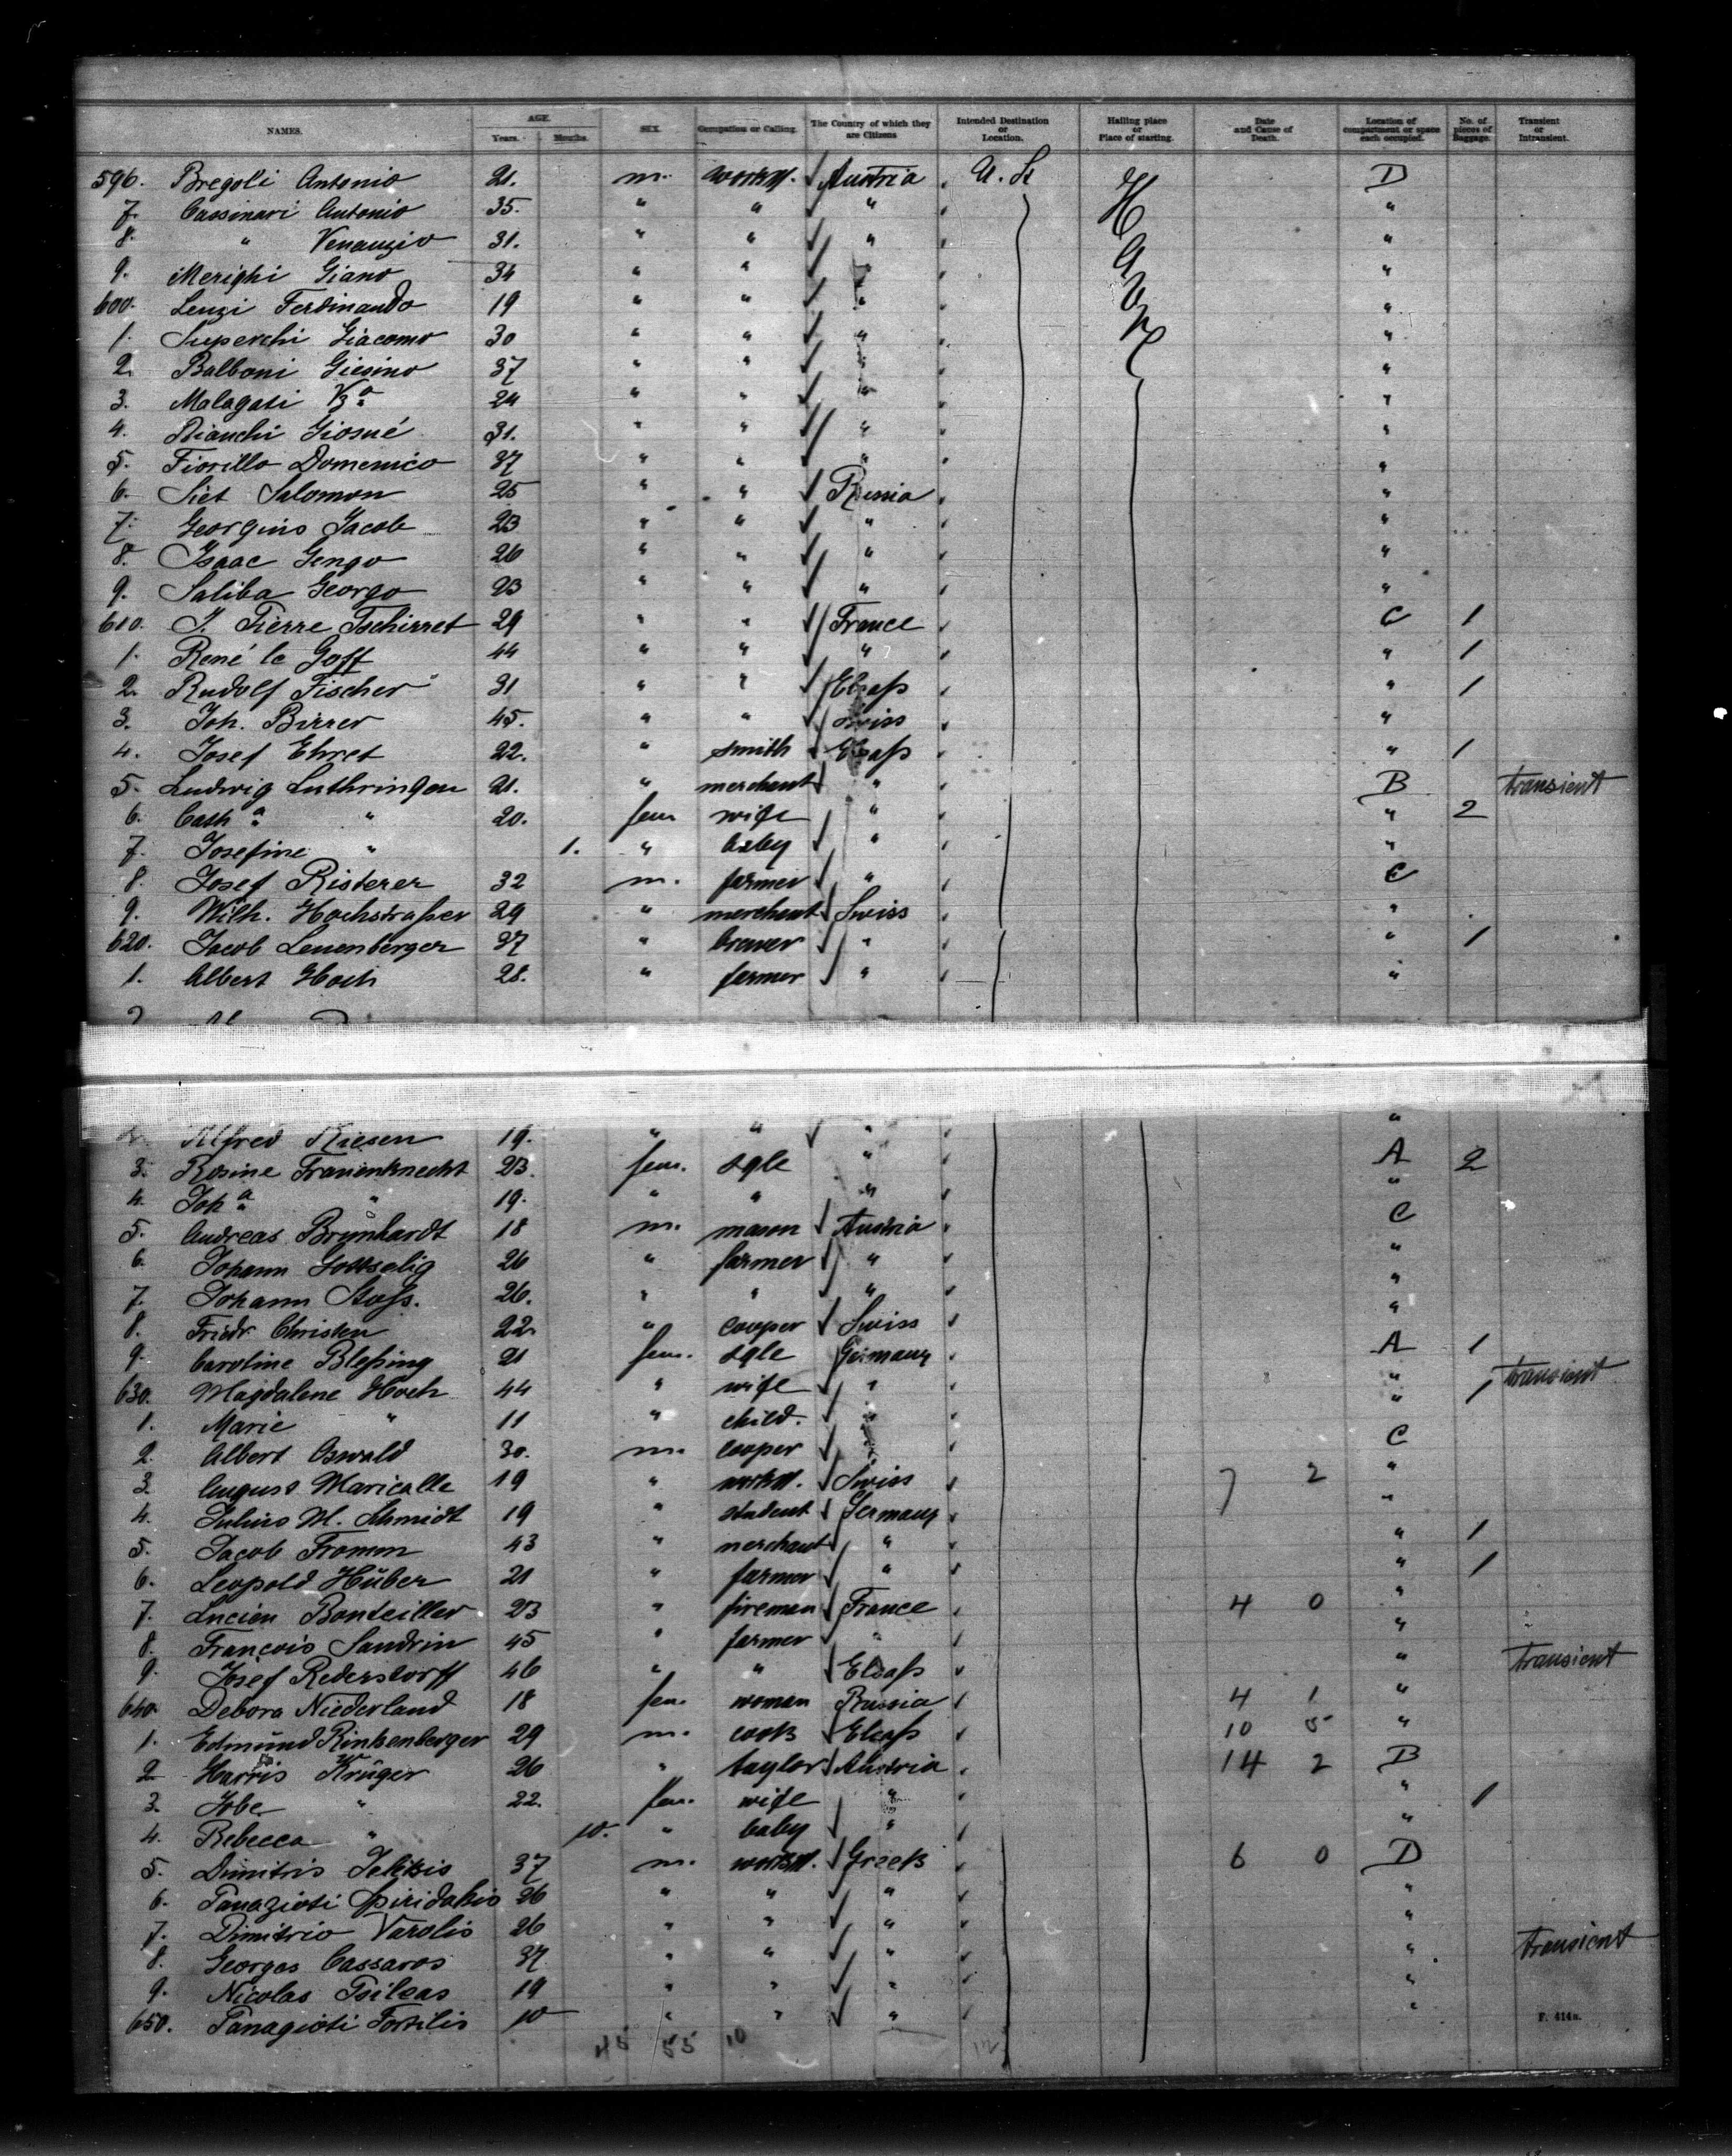 NAMES. AGE. Years. Months. SEX. Occupation or Calling. The Country of which they are Citizens Intended Destination or Location. Hailing place or Place of starting. Date and Cause of Death. Location of compartment or space each occupied. No. of pieces of Baggage. Transient or Intransient.
596. Bregoli Antonio 21. m. workm. Austria U. St Havre D
7. Cassinari Antonio 35. " " " "
8. " Venanzio 31. " " " "
9. Merighi Giano 34 " " " "
600. Lenzi Ferdinando 19 " " " "
1. Superchi Giacomo 30 " " " "
2. Balboni Giesino 37 " " " "
3. Malagati 24 " " " "
4. Bianchi Giosué 31. " " " "
5. Fiorillo Domenico 37 " " " "
6. Siet Salomon 25 " " Russia "
7. Georgius Jacob 23 " " " "
8. Isaac Gengo 26 " " " "
9. Saliba Georgo 23 " " " "
610. J. Pierre Tschirret 29 " " France C 1
1. René le Goff 44 " " " " 1
2. Rudolf Fischer 31 " " Elsaß " 1
3. Joh. Birrer 45. " " Swiss "
4. Josef Ehret 22. " smith Elsaß " 1
5. Ludwig Luthringer 21. " merchant " B transient
6. Cath.a " 20. fem wife " " 2
7. Josefine " 1. " baby " "
8. Josef Risterer 32 m. farmer " C
9. Wilh. Hochstraßer 29 " merchant Swiss "
620. Jacob Leuenberger 37 " brewer " " 1
1. Albert Hoch 28. " farmer " "
2. Alfred Riesen 19. " " " "
3. Rosine Frauenknecht 23. fem. sgle " A 2
4. Joh.a " 19. " " " "
5. Andreas Brünhardt 18 m. mason Austria C
6. Johann Gottselig 26 " farmer " "
7. Johann Stoß. 26. " " " "
8. Friedr Christen 22. " cooper Swiss "
9. Caroline Bleßing 21 fem. sgle Germany A 1
630. Magdalene Hoch 44 " wife " " 1 transient
1. Marie " 11 " child. " "
2. Albert Oswald 30. m. cooper " C
3. August Maricalle 19 " workm. Swiss 7 2 "
4. Julius M. Schmidt 19 " student Germany "
5. Jacob Fromm 43 " merchant " " 1
6. Leopold Hüber 21 " farmer " " 1
7. Lucien Bonteiller 23 " fireman France 4 0 "
8. François Sandrin 45 " farmer " "
9. Josef Rederstorff 46 " " Elsaß " transient
640. Debora Niederland 18 fem. woman Russia 4 1 "
1. Edmünd Rinkenberger 29 m. cook Elsaß 10 5 "
2 Harris Krüger 26 " taylor Austria 14 2 B
3. Jobe " 22. fem. wife " " 1
4. Rebecca " 10. " baby " "
5. Dimitris 37 m. workm. Greek 6 0 D
6. Panazioti Spiridakis 26 " " " "
7. Dimitrio Varolis 26 " " " "
8. Georgos Cassaros 37 " " " " transient
9. Nicolas Psileas 19 " " " "
650. Panagioti 10 " " " "
F. 414a.